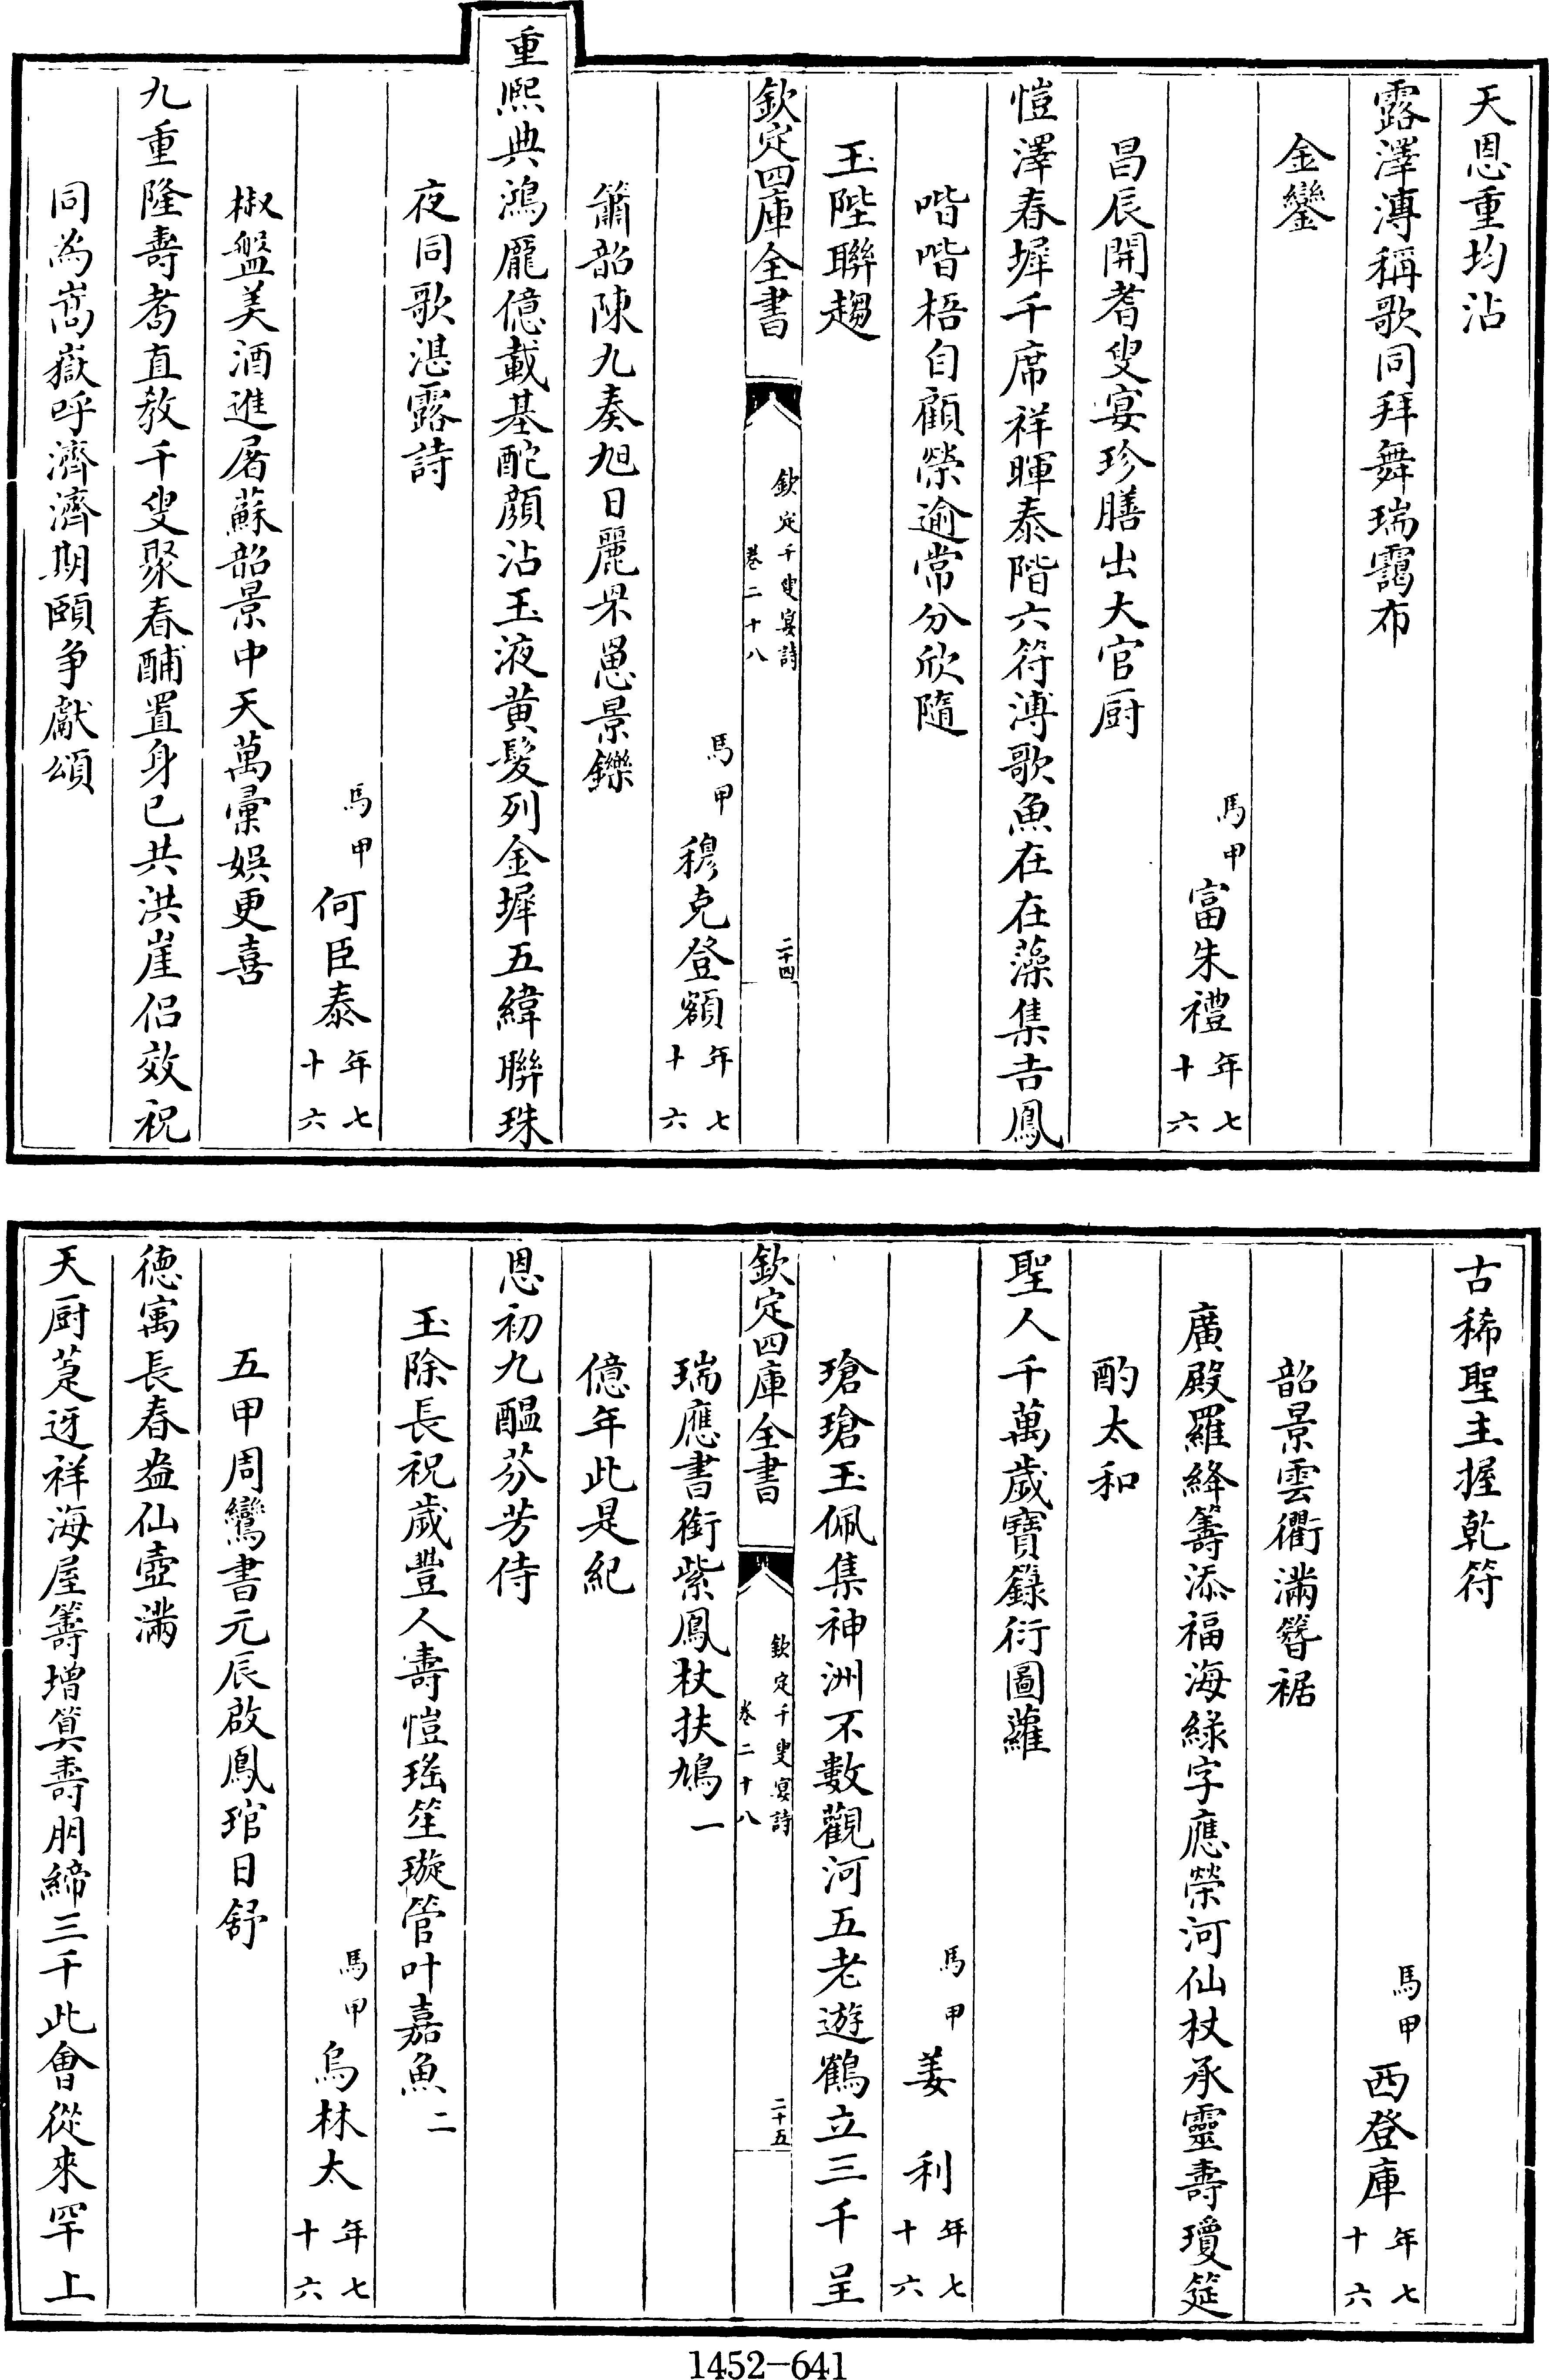 天恩重均沾
露澤溥稱歌同拜舞瑞靄布
金鑾
馬甲富朱禮年七十六
昌辰開耆叟宴珍膳出大官厨
愷澤春墀千席祥暉泰階六符溥歌魚在在藻集吉鳳
喈喈梧自顧榮逾常分欣隨
玉陛聯趨
欽定四庫全書
欽定千叟宴詩
卷二十八
二十四
馬甲穆克登額年七十六
簫韶陳九奏旭日麗罘罳景鑠
重熙典鴻龎億載基酡顔沾玉液黄髮列金墀五緯聯珠
夜同歌湛露詩
馬甲何臣泰年七十六
椒盤美酒進屠蘇韶景中天萬彚娯更喜
九重隆壽耈直教千叟聚春酺置身已共洪崖侣效祝
同為嵩嶽呼濟濟期頤争獻頌
古稀聖主握乾符
馬甲西登庫年七十六
韶景雲衢滿簪裾
廣殿羅絳籌添福海緑字應榮河仙杖承靈壽瓊筵
酌太和
聖人千萬歲寳籙衍圖蘿
馬甲姜利年七十六
瑲瑲玉佩集神洲不數觀河五老遊鶴立三千呈
欽定四庫全書
欽定千叟宴詩
卷二十八
二十五
瑞應書銜紫鳳杖扶鳩一
億年此是紀
恩初九醖芬芳侍
玉除長祝歲豐人壽愷瑤笙璇管叶嘉魚二
馬甲烏林太年七十六
五甲周鸞書元辰啟鳳琯日舒
德寓長春盎仙壺滿
天厨萐迓祥海屋籌增算壽朋締三千此會從來罕上
1452-641